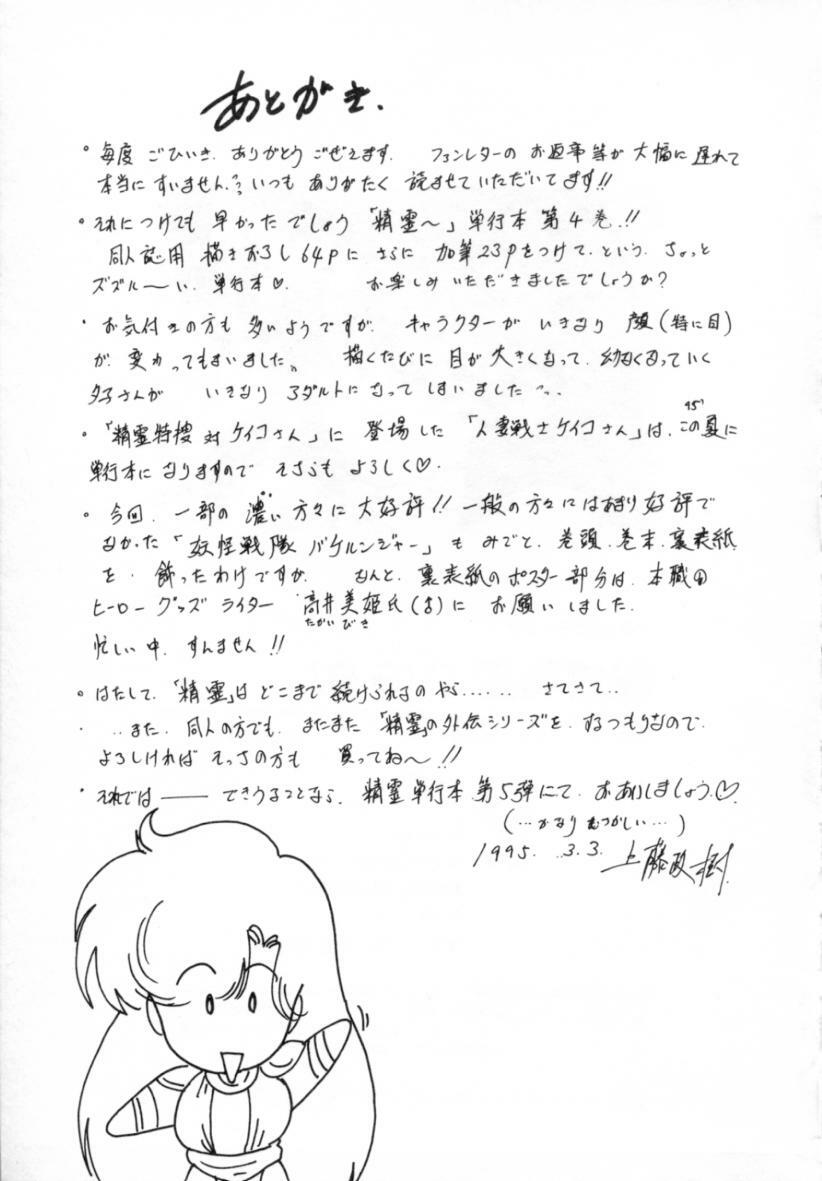 あとがき.
・毎度 ごひいき、ありがとう ごぜえます. ファンレターの お返事等が 大幅に 遅れて
本当に すいません.? いつも ありがたく 読ませていただいてます!!
・それにつけても 早かった でしょう「精霊〜」単行本 第4巻.!!
同人誌用 描きおろし 64Pに さらに 加筆23Pをつけて、という、ちょっと
ズズル〜い、単行本♡. お楽しみ いただきましたでしょうか?
・お気付きの方も 多いようですが、キャラクターが いきなり 顔(特に目)
が、変わってしまいました。 描くたびに 目が 大きくなって、幼くなっていく
夕子さんが いきなり アダルトに なって しまいました
・「精霊特捜 対 ケイコさん」に 登場した「人妻戦士ケイコさん」は、この夏に
95'
単行本に なりますので そちらも よろしく♡.
・今回、一部の 濃い 方々に 大好評!! 一般の方々には あまり 好評で
なかった「妖怪戦隊 バケルンジャー」も みごと、巻頭、巻末、裏表紙
を 飾ったわけですが、 なんと、裏表紙の ポスター部分は、本職の
ヒーロー グッズ ライター 高井美姫氏(♀)に お願いしました.
たかい びき
忙しい中、すんません!!
・はたして、「精霊」は どこまで 続けられるの やら…… さてさて..
・‥また、同人の方でも、またまた「精霊」の外伝シリーズを、するつもりなので、
よろしければ そっちの方も 買ってね〜!!
・それでは── できうることなら、精霊単行本 第5弾にて、おあいしましょう.♡.
(…かなり むつかしい…)
1995. 3.3. 上藤政樹